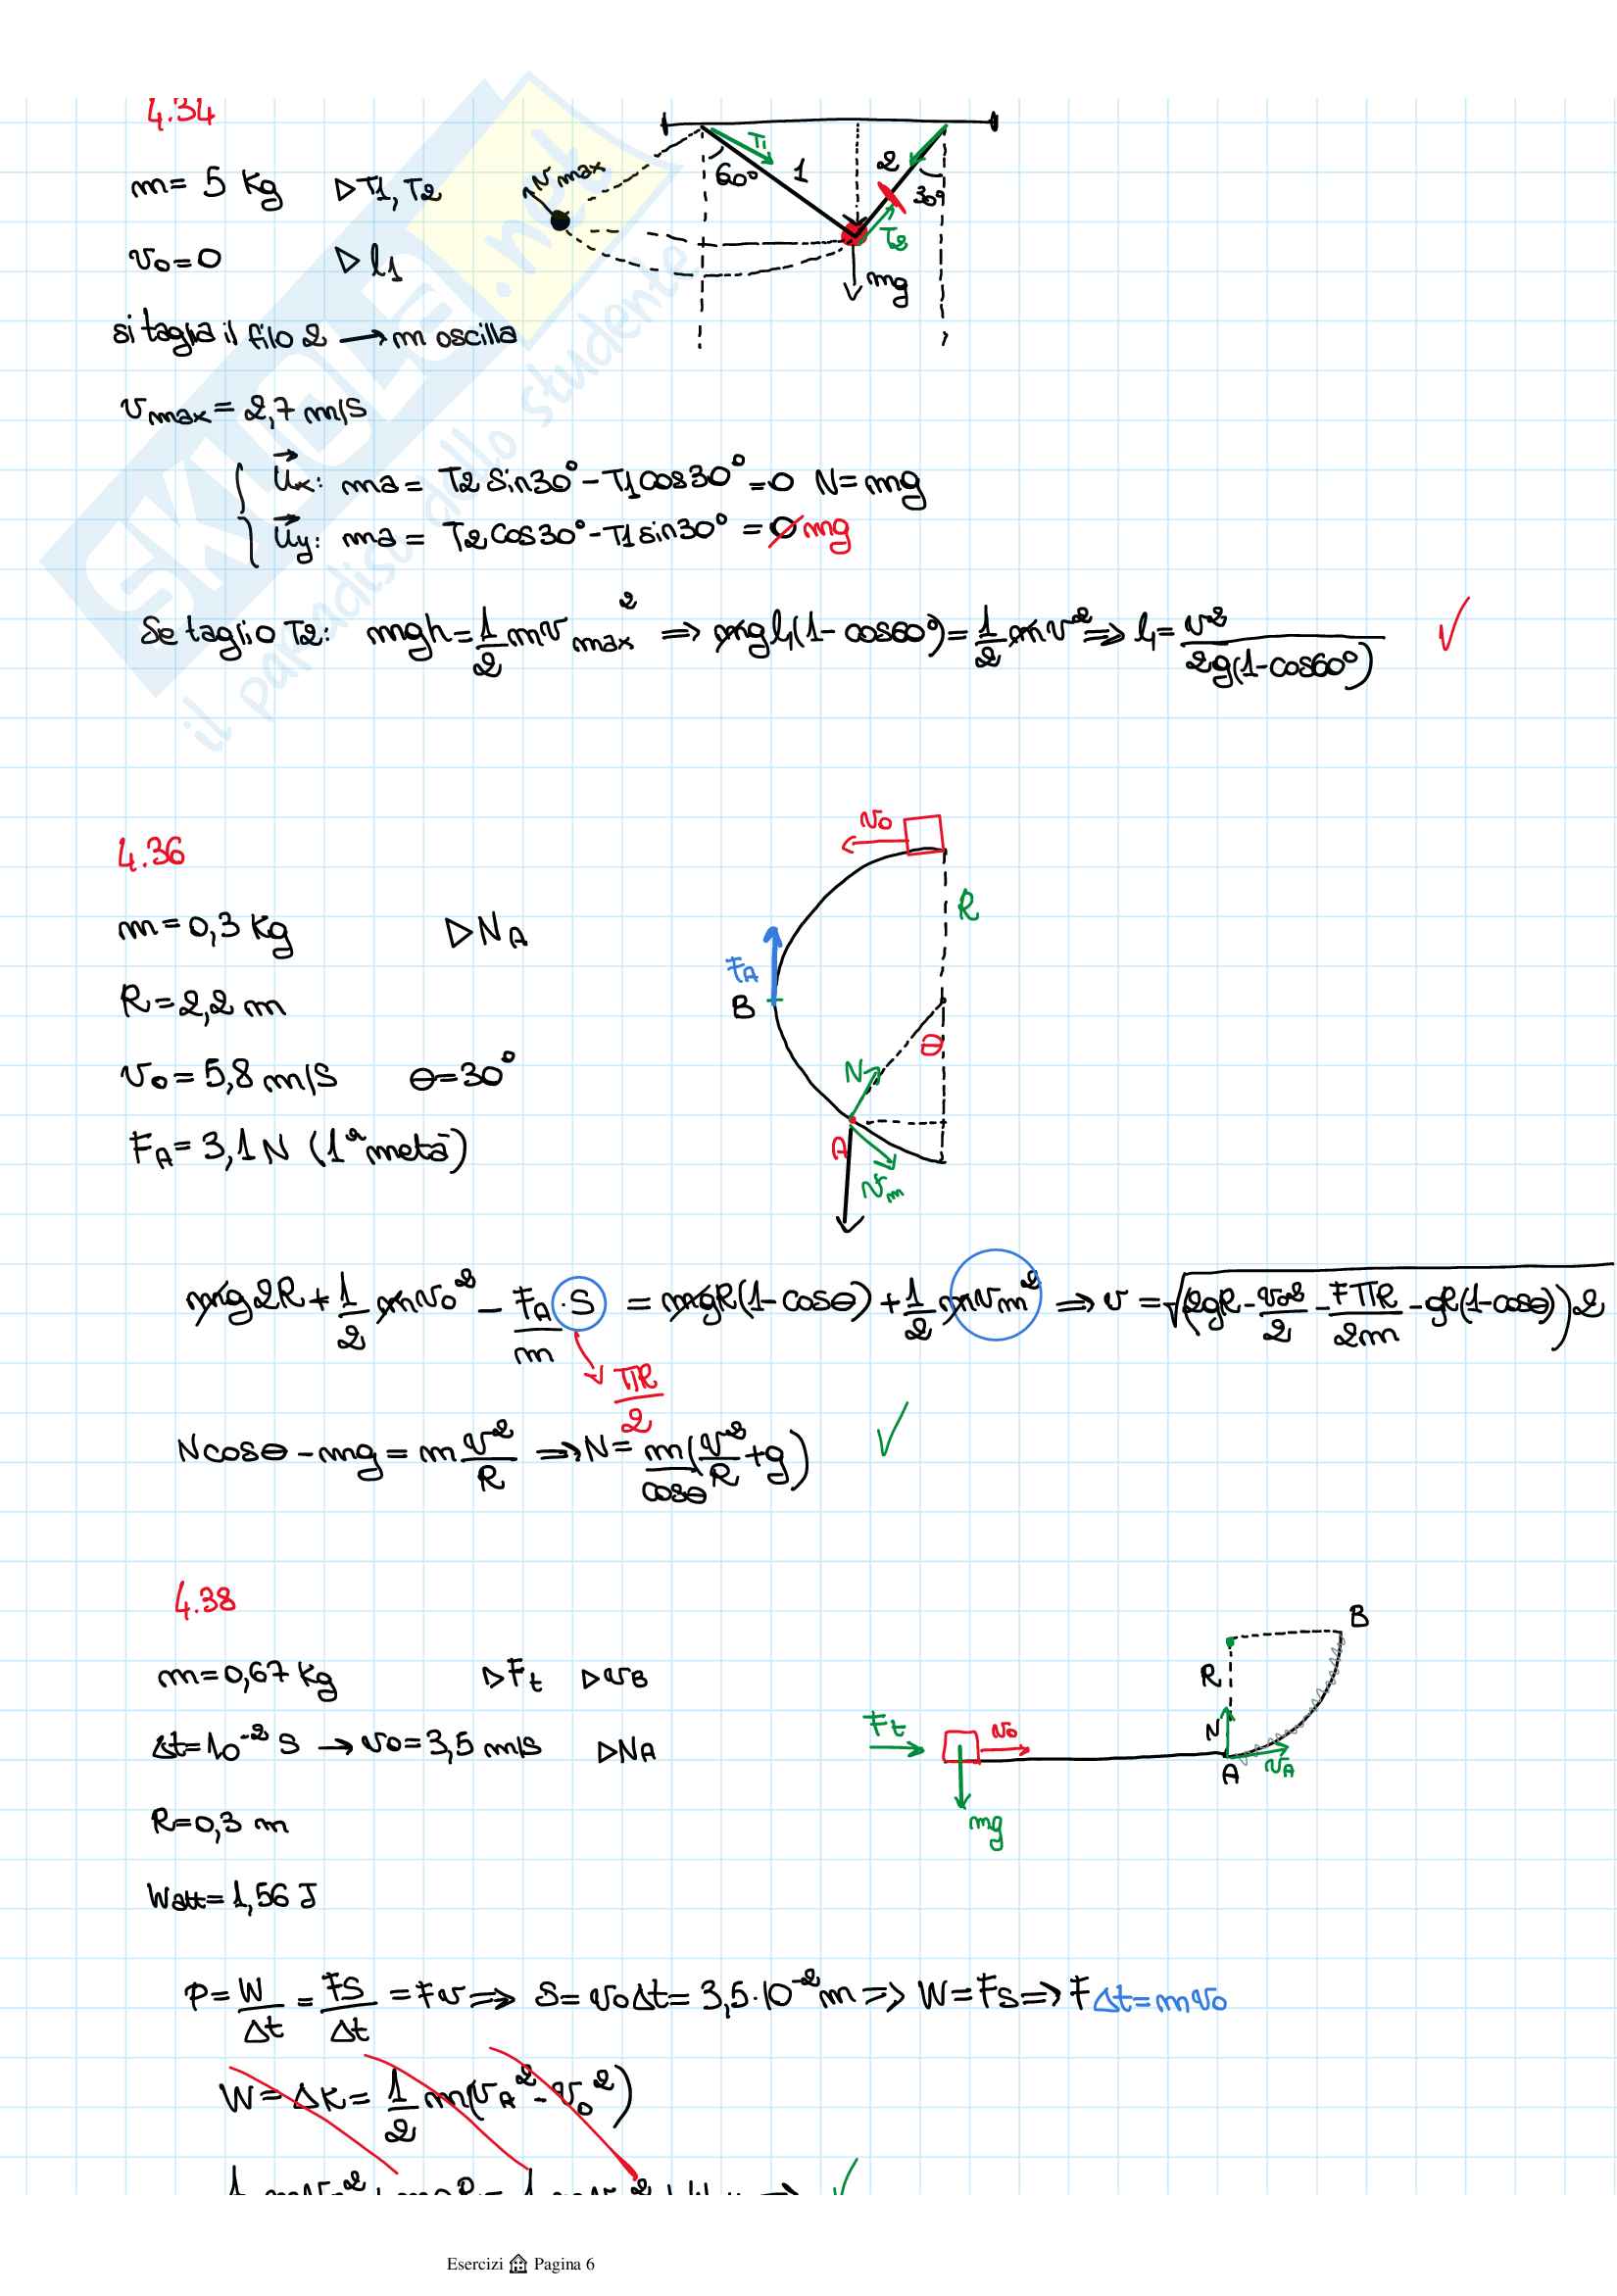 4.34
m = 5 Kg ▷T1, T2
v₀ = 0 ▷ l₁
si taglia il filo 2 → m oscilla
vmax = 2,7 m/s
vmax 60° T1 1 2 30° T2 mg
u⃗x: ma = T2 sin30° - T1 cos30° = 0 N = mg
u⃗y: ma = T2 cos30° - T1 sin30° = 0 mg
Se taglio T2: mgh = 1/2 mv²max ⇒ mgl₁(1 - cos60°) = 1/2 mv² ⇒ l₁ = v²/2g(1-cos60°) ✓
4.36
m = 0,3 Kg ▷N_A
R = 2,2 m
v₀ = 5,8 m/s θ = 30°
F_A = 3,1 N (1ª metà)
v₀ R F_A B θ N A vm
mg2R + 1/2 mv₀² - F_A/m · S = mgR(1 - cosθ) + 1/2 mvm² ⇒ v = √(2gR - v₀²/2 - FπR/2m - gR(1-cosθ))2
πR/2
Ncosθ - mg = m v²/R ⇒ N = m/cosθ (v²/R + g) ✓
4.38
m = 0,67 Kg ▷F_t ▷v_B
Δt = 10⁻² s → v₀ = 3,5 m/s ▷N_A
R = 0,3 m
Watt = 1,56 J
F_t v₀ mg R N A v_A B
P = W/Δt = FS/Δt = Fv ⇒ S = v₀Δt = 3,5·10⁻² m ⇒ W = FS ⇒ F Δt = mv₀
W = ΔK = 1/2 m(v_A² - v₀²)
Esercizi Pagina 6
SKUOLA.net
il paradiso dello studente